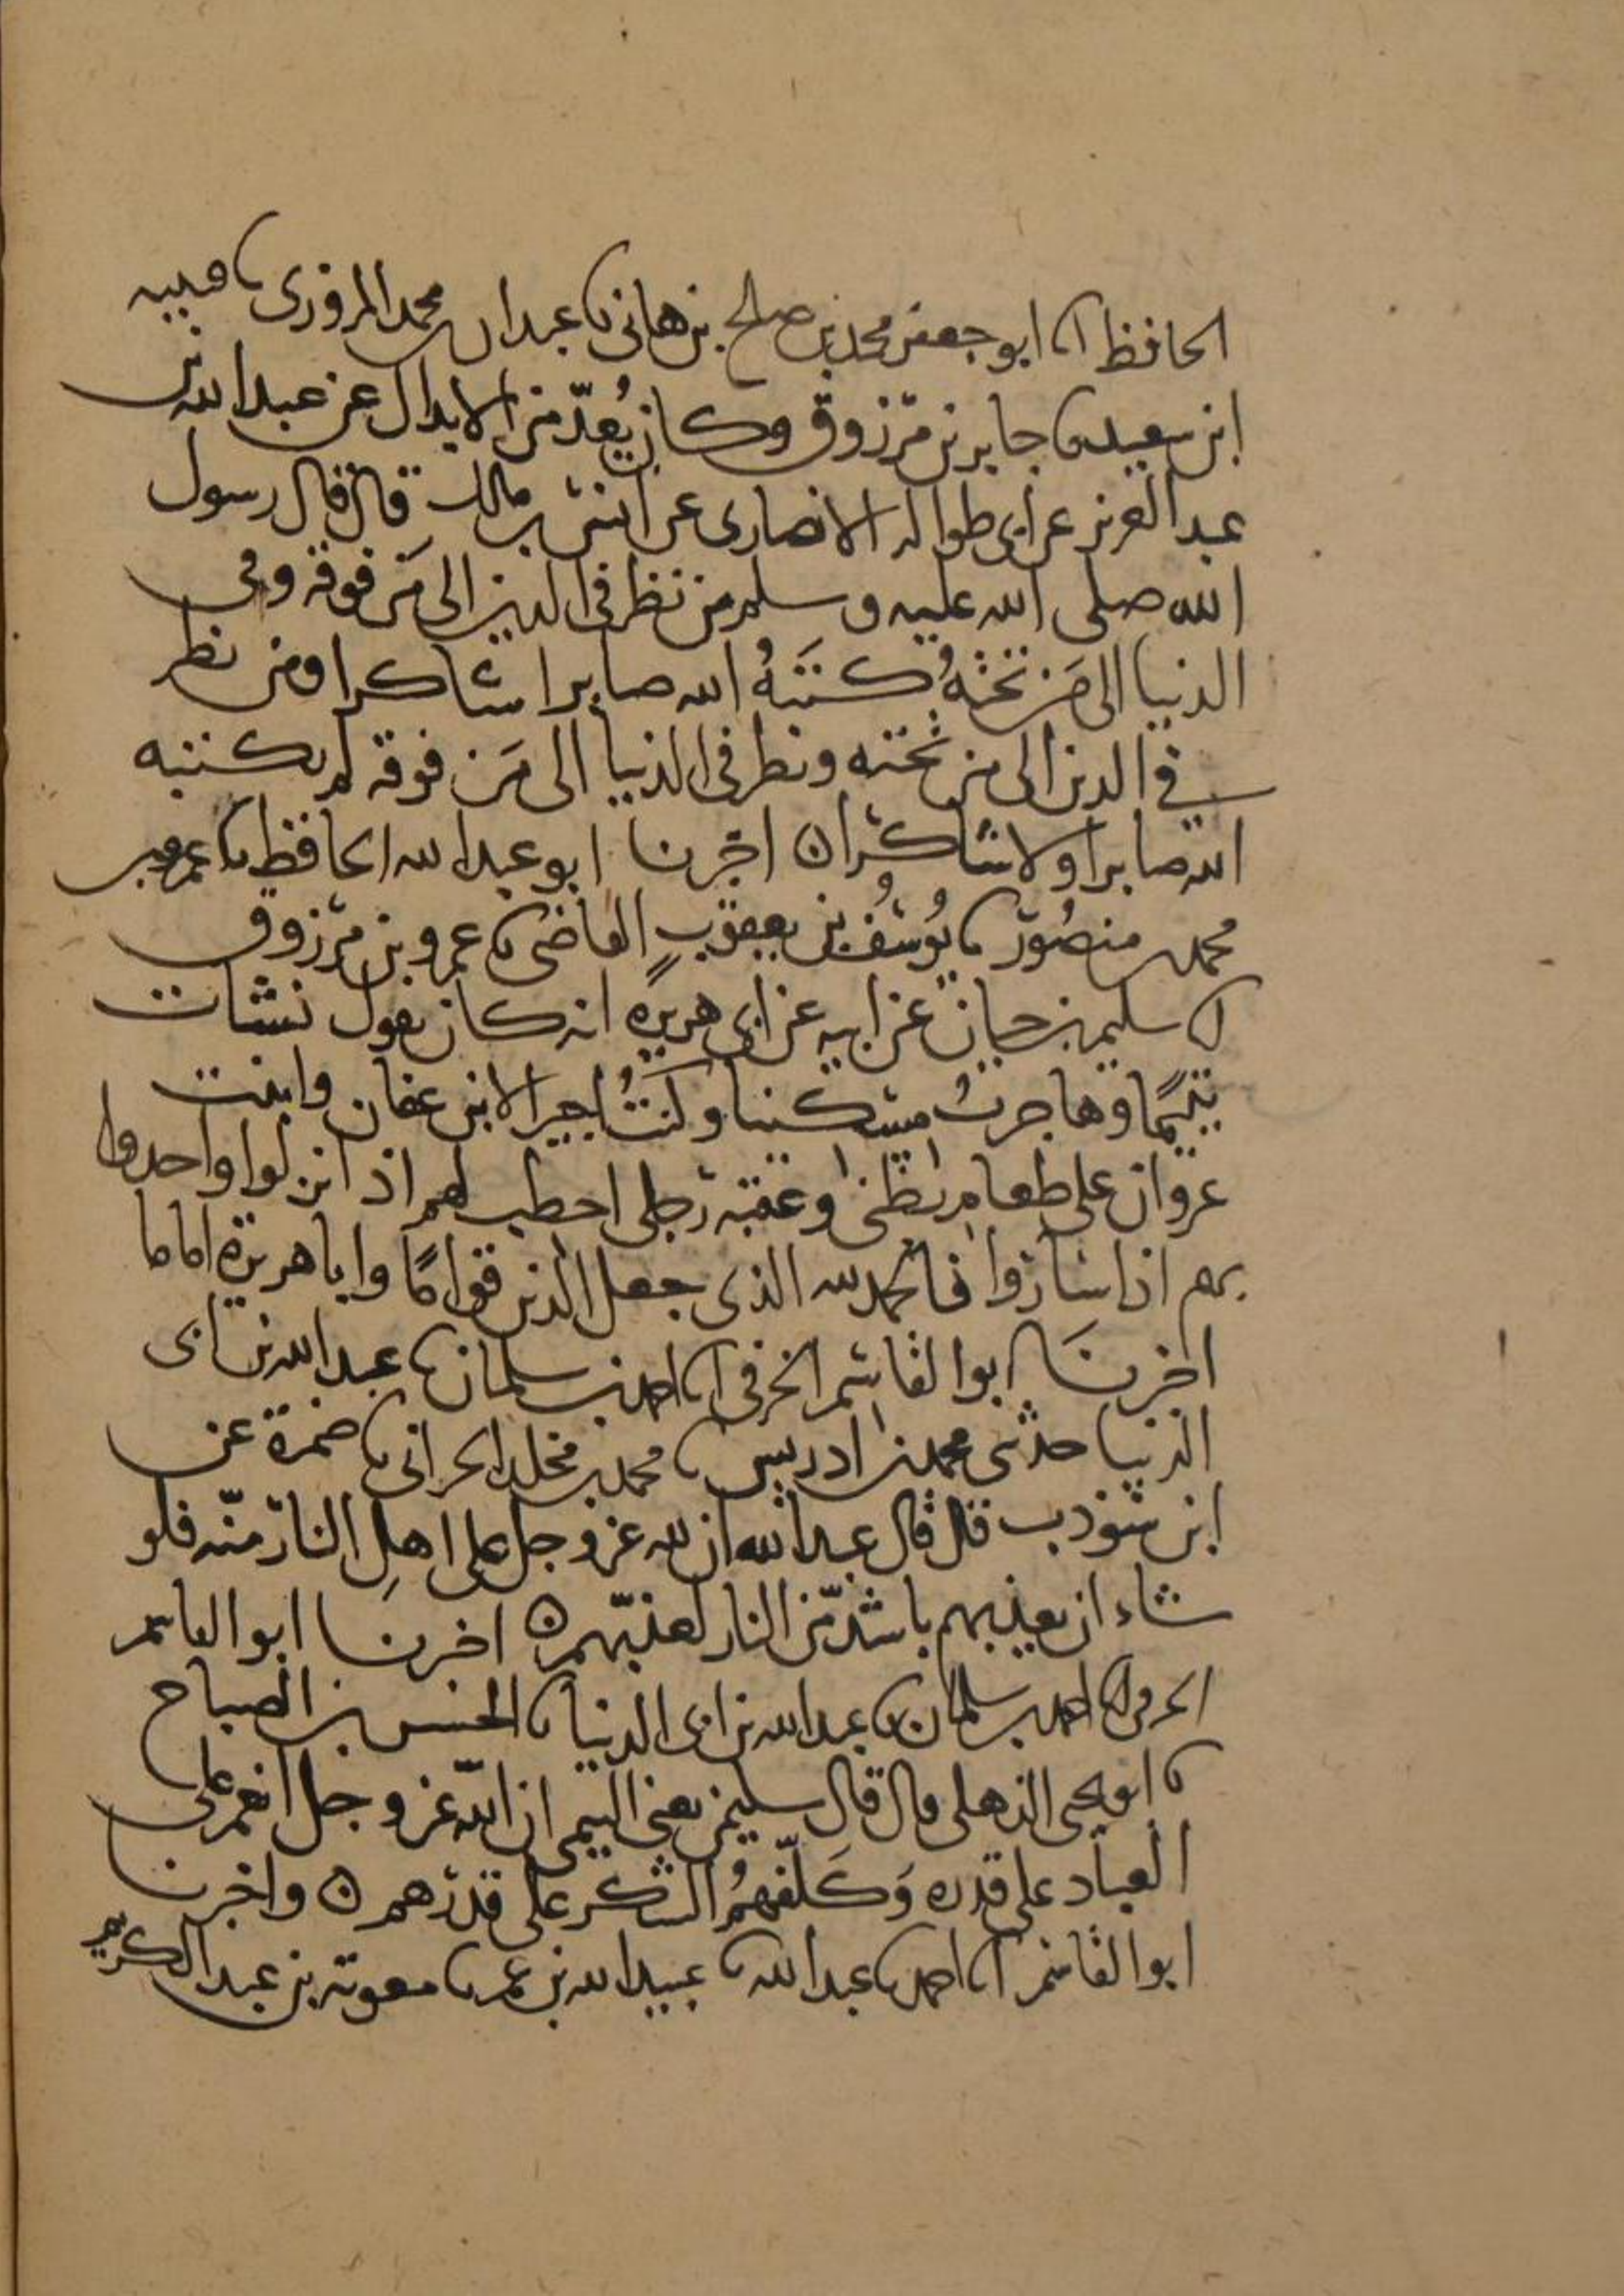 الحافظ انا ابو جعفر محمد بن صلح بن هانى نا عبدان محمد المروزى نا قتيبه
ابن سعيد نا جابر بن مرزوق وكان يُعدّ من الابدال عن عبد الله بن
عبد العزيز عن ابى طواله الانصارى عن انس بن مالك قال قال رسول
الله صلى الله عليه وسلم من نظر فى الدين الى مَن فوقه وفى
الدنيا الى مَن تحتهُ كتَبَهُ الله صابرا شاكرا ومن نظر
فى الدين الى من تحته ونظر فى الدنيا الى مَن فوقه لم يكتبه
الله صابرا ولا شاكرا ه اخبرنا ابو عبد الله الحافظ نا عمرو بن
محمد بن منصُور نا يُوسُف بن يعقوبٍ القاضى نا عمرو بن مرزوق
انا سليم بن حيان عن ابيه عن ابى هريره انه كان يقول نشات
يتيمًا وهاجرتُ مسكينا وكنتُ اجيرا لابن عفان وابنت
غزوان على طعام بطنى وعقبه رجلى احطب لهم اذا نزلوا واحدوا
بهم اذا ساروا فالحمد لله الذى جعل الدين قوامًا وابا هريرة اماما
اخبرنَا ابو القاسم الخرفى انا احمد بن سلمان نا عبد الله بن ابى
الدنيا حدثنى محمد بن ادريس نا محمد بن مخلد الحرانى نا ضمرة عن
ابن شوذب قال قال عبد الله ان لله عز وجل على اهلِ النار منّه فلو
شاء ان يعذبهم باشدّ من النار لعذبّهم ه اخبرنا ابو القاسم
الحرفى انا احمد بن سلمان نا عبد الله بن ابى الدنيا نا الحسن بن الصباح
نا ابو يحيى الذهلى قال قال سليمن يعنى التيمى ان الله عز وجل انعم على
العباد على قدره وَكَلّفهمُ الشكر على قدرهم ه واخبرنا
ابو القاسم انا احمد نا عبد الله نا عبيد الله بن عمر نا معوية بن عبد الكريم